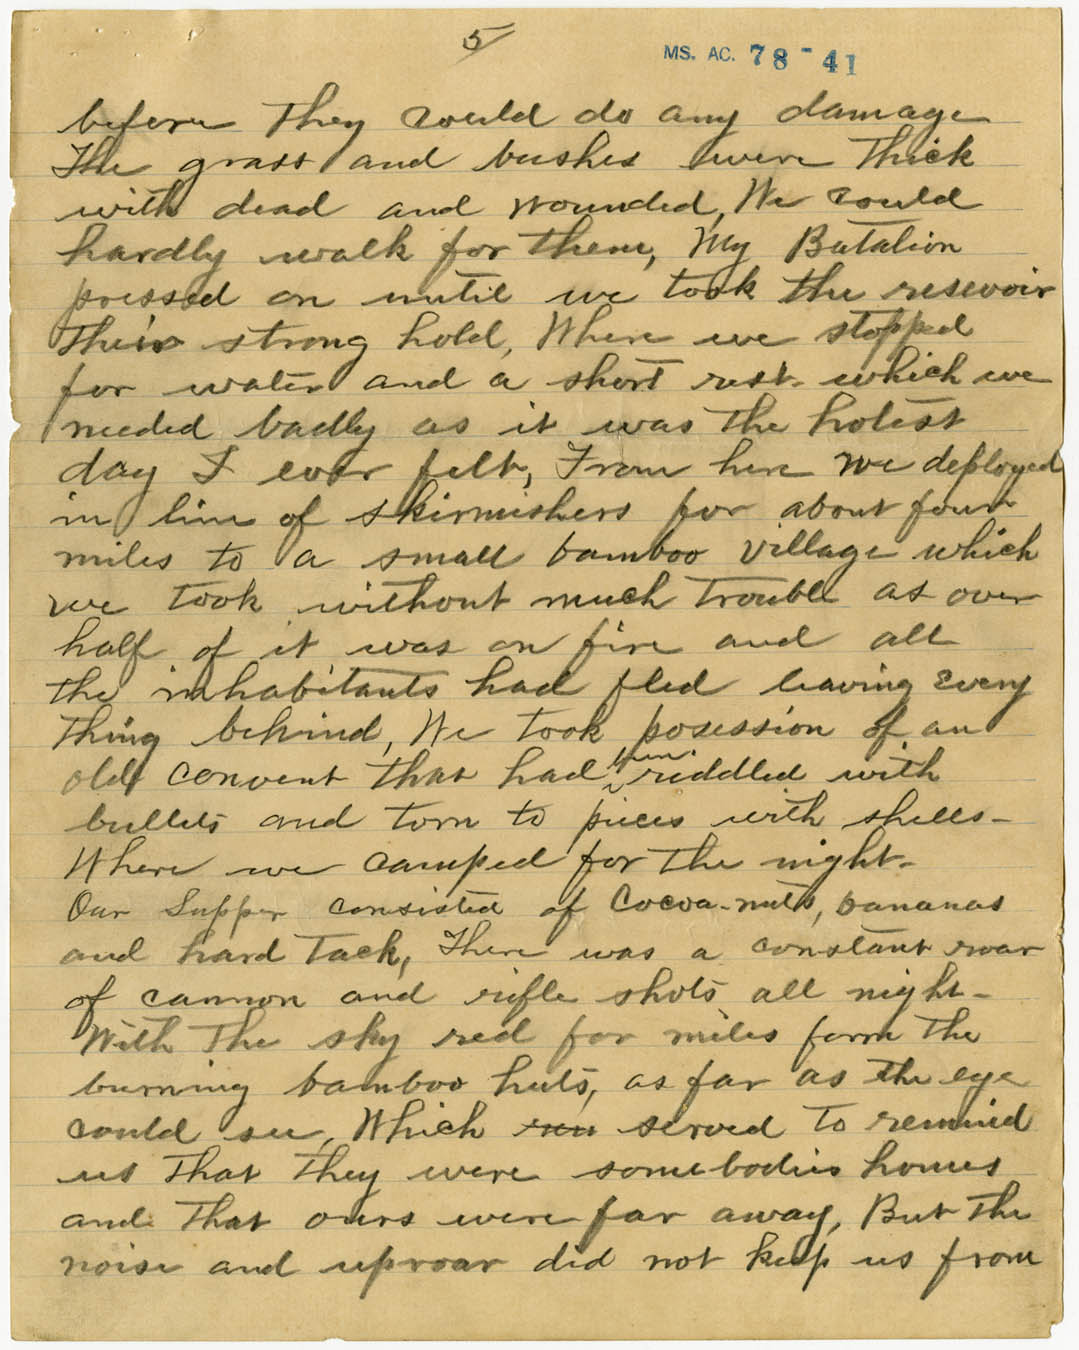 5
MS. AC. 78-41
before they could do any damage
The grass and bushes were thick
with dead and wounded, We could
hardly walk for them, My Batalion
pressed on until we took the resevoir
their strong hold, Where we stopped
for water and a short rest- which we
needed badly as it was the hotest
day I ever felt, From here we deployed
in line of skirmishers for about four
miles to a small bamboo village which
we took without much trouble as over
half of it was on fire and all
the inhabitants had fled leaving every
thing behind, We took posession of an
old convent that had been riddled with
bullets and torn to pieces with shells-
Where we camped for the night-
Our Supper consisted of Cocoa-nuts, bananas
and hard tack, There was a constant roar
of cannon and rifle shots all night-
With the sky red for miles form the
burning bamboo huts, as far as the eye
could see, Which served to remind
us that they were somebodies homes
and that ours were far away, But the
noise and uproar did not keep us from